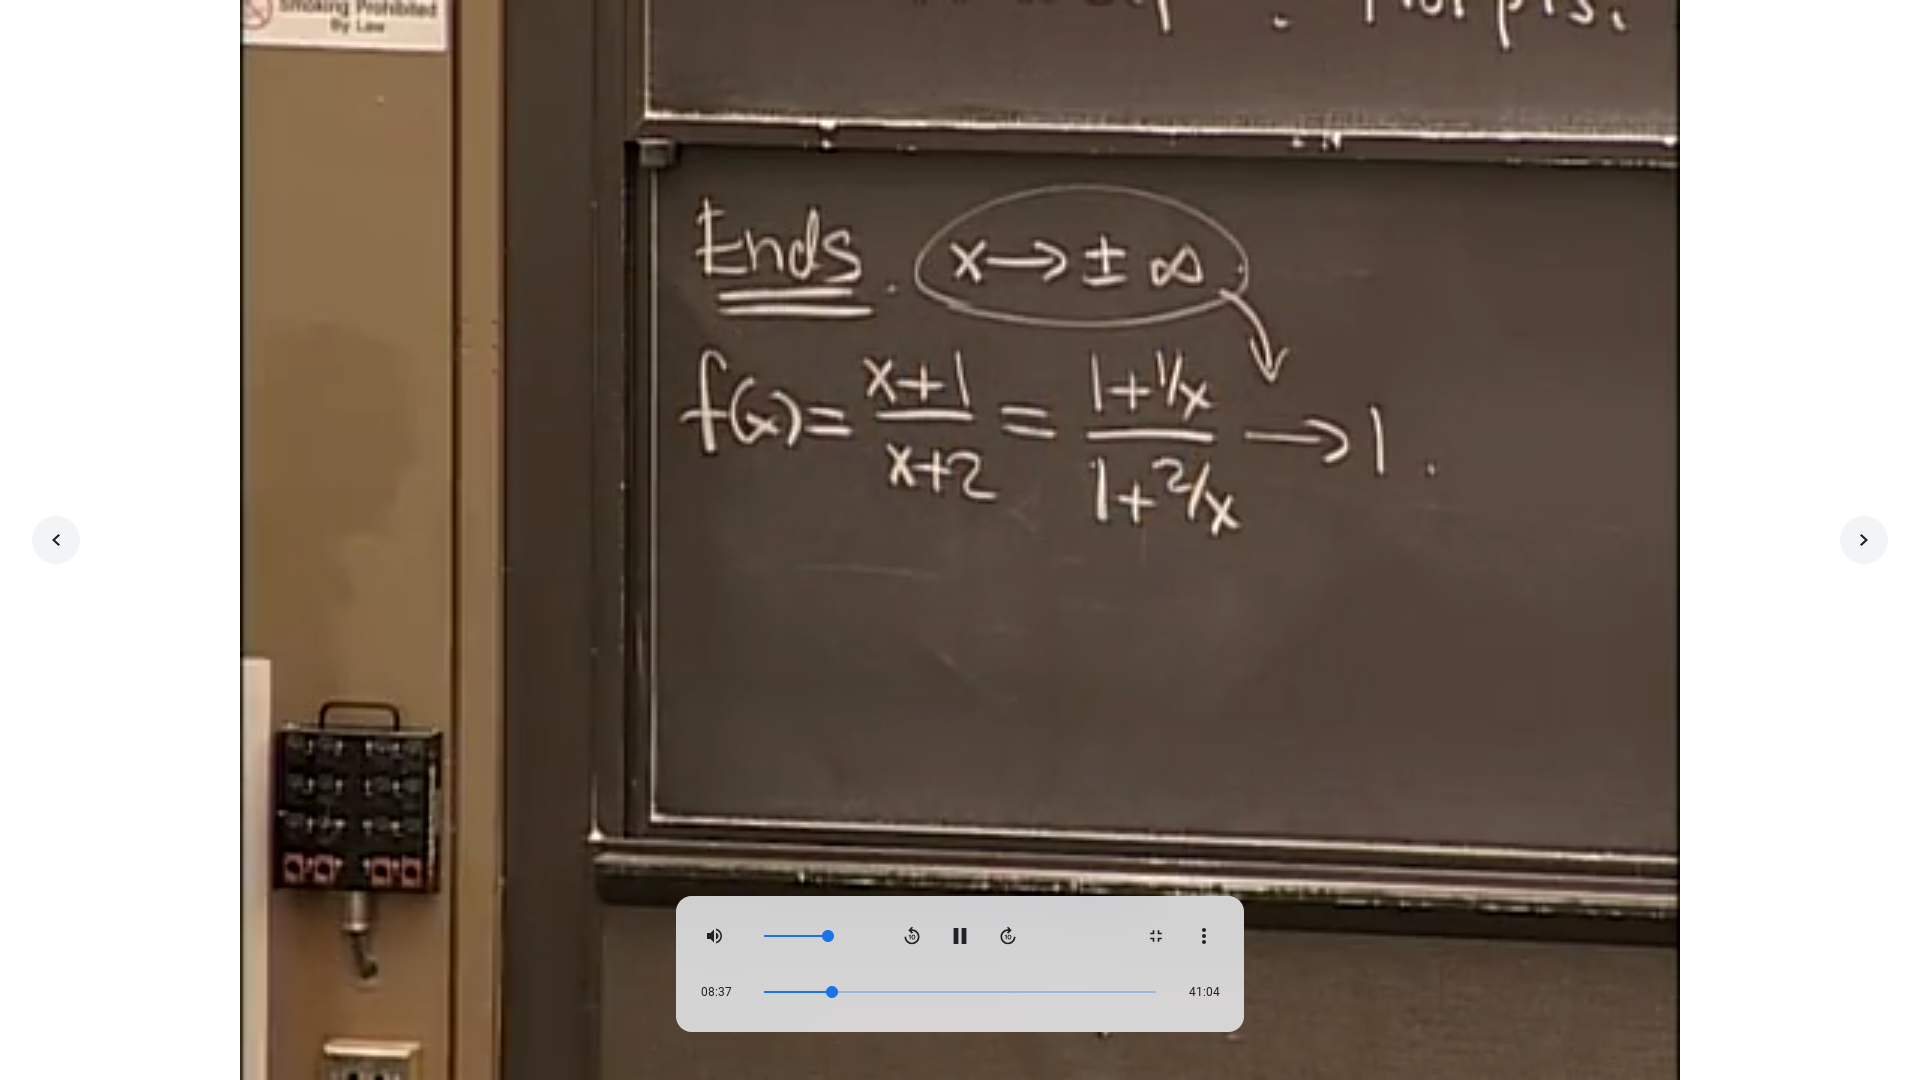 Smoking Prohibited
By Law
Ends. x → ± ∞
f(x) = (x+1)/(x+2) = (1+1/x)/(1+2/x) → 1.
08:37
41:04